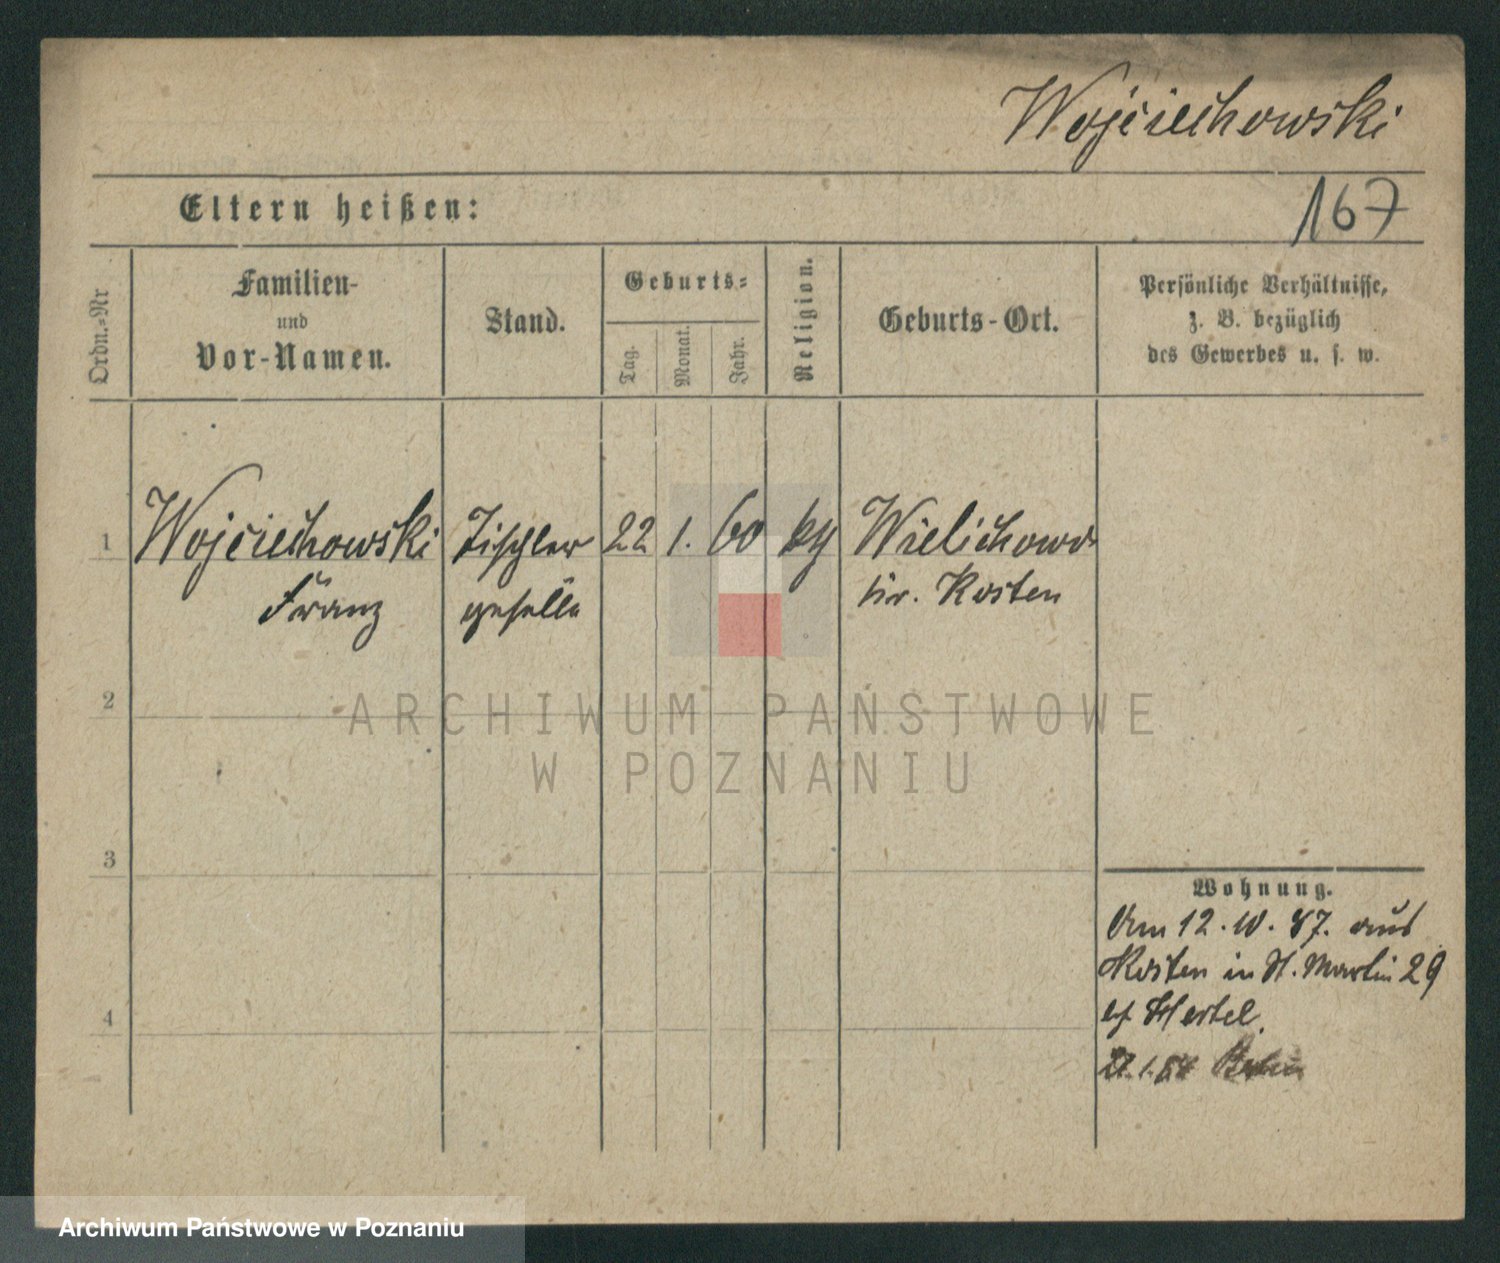 Wojciechowski
167
Eltern heißen:
Ordn.-Nr
Familien-
und
Vor-Namen.
Stand.
Geburts-
Tag.
Monat.
Jahr.
Religion.
Geburts-Ort.
Persönliche Verhältnisse,
z. B. bezüglich
des Gewerbes u. s. w.
1
Wojciechowski Tischler 22 1. 60 Wielichowo
Franz geselle Kr. Kosten
2
3
4
Wohnung.
Am 12.10.87. aus
Kosten in St. Martin 29
Hertel.
ARCHIWUM PAŃSTWOWE
W POZNANIU
Archiwum Państwowe w Poznaniu